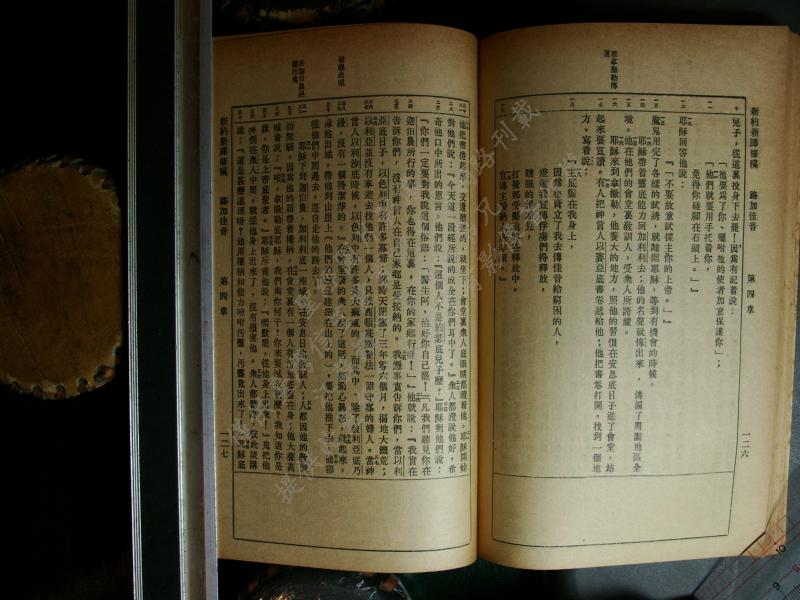 新約新譯修稿　路加佳音　第四章　一二六
兒子，從這裏投身下去罷！因爲有記着說：
「他要爲了你、囑咐祂的使者加意保護你」；
「他們就要用手托着你，
免得你碰脚在石頭上。」』
耶穌回答他說：
『「不要故意試探主你的上帝。」』
魔鬼用完了各樣的試誘，就離開耶穌，等到有機會的時候。
耶穌帶着靈底能力回加利利去；他的名聲就傳出來，傳遍了周圍地區全
境。他在他們的會堂裏敎訓人，受衆人所誇耀。
在拿撒勒傳道
耶穌來到拿撒勒，他養大的地方，照他的習慣在安息底日子進了會堂，站
起來要宣讀。有人把神言人以賽亞底書卷遞給他；他把書卷打開，找到一個地
方、寫着說：
『主底靈在我身上，
因爲他膏立了我去傳佳音給窮困的人，
差遣我宣傳俘虜們得釋放，
瞎眼的得看見，
打發那受壓迫的在釋放中，
宣傳主
他把書卷捲起來，交還給差役，就坐下；會堂裏衆人底眼睛都瞪看他。耶穌開始
對他們說：『今天這一段經所說的成全在你們耳中了。』衆人都證說他好，希
奇他口中所出的恩言。他們說：『這個人不是約瑟底兒子麼？』耶穌對他們說：
『你們一定要對我說這個俗語：「醫生阿，治好你自己罷！」凡我們聽見你在
迦伯農所行的事，你也得在這裏，在你的家鄉行呀！』他就說：『我實在
告訴你們，沒有神言人在自己家鄉是受接納的。我憑事實告訴你們，當以利
亞底日子，以色列中有許多寡婦；那時天閉塞了三年零六個月，徧地大饑荒；
以利亞並沒有奉差去找他們一個人，只找西頓底撒勒法一個守寡的婦人。當神
言人以利沙底時候，以色列中有許多患大痲瘋的，而其中除了敍利亞底乃
縵，沒有一個得潔淨的。』在會堂裏的衆人聽了這話，都滿心暴怒，就起來，
被趕出城
攆他出城，帶他到山崖上（他們的城是建造在山上的），要把他推下去；他卻
從他們中間過去，逕自走他的路去了。
在迦伯農趕污鬼
耶穌下到迦伯農，加利利底一座城，在安息日他敎訓人；人都因他的敎訓
而驚駭，因爲他的話帶着權柄。在會堂裏有一個人有污鬼底靈在身；他大聲喊
嚷着說：『唉，拿撒勒人耶穌，我們與你何干？你來要滅我們麼？我知道你是
誰，你是上帝底聖者。』耶穌斥責他說：『噤默！從他身上出來！』鬼把他
摔倒在衆人中間，就從他身上出來了，沒有損害他。衆人都驚訝，彼此談講
說：『這是甚麼道理呀？他用權柄和能力吩咐污靈，污靈竟出來了！』耶穌底
新約新譯修稿　路加佳音　第四章　一二七